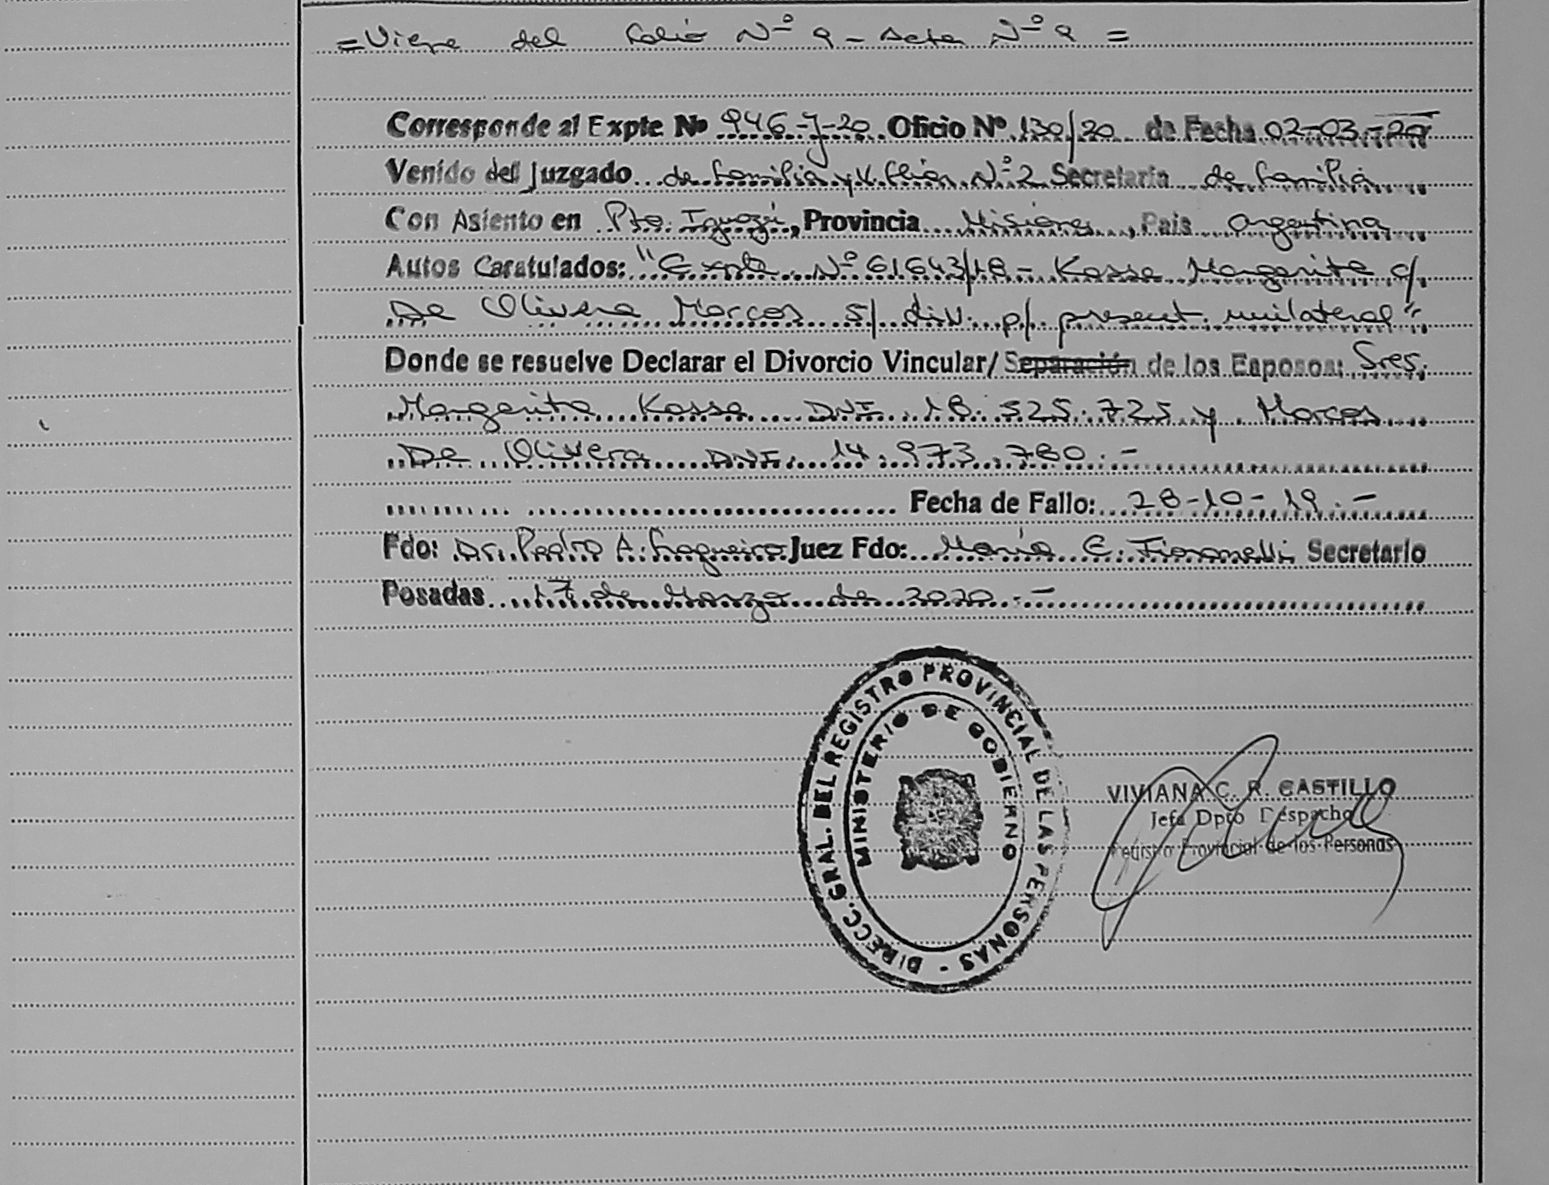 =Viene del folio Nº 9 - Acta Nº 9 =
Corresponde al Expte Nº 946-J-20 Oficio Nº 130/20 de Fecha 02-03-20
Venido del Juzgado de familia y V. flia Nº 2 Secretaria de familia
Con Asiento en Pto. Iguazú, Provincia Misiones, País Argentina
Autos Caratulados: "Expte Nº 61643/18 - Kossa Margarita c/
De Olivera Marcos s/ div. p/ present. unilateral"
Donde se resuelve Declarar el Divorcio Vincular/ Separación de los Esposos: Sres.
Margarita Kossa DNI. 18.525.725 y Marcos
De Olivera DNI. 14.973.780.-
Fecha de Fallo: 28-10-19.-
Fdo: Dr. Pedro A. Fragueiro Juez Fdo: María E. Secretario
Posadas 17 de Marzo de 2020.-
DIRECC. GRAL. DEL REGISTRO PROVINCIAL DE LAS PERSONAS -
MINISTERIO DE GOBIERNO
VIVIANA C. R. CASTILLO
Jefa Dpto Despacho
Registro Provincial de los Personas